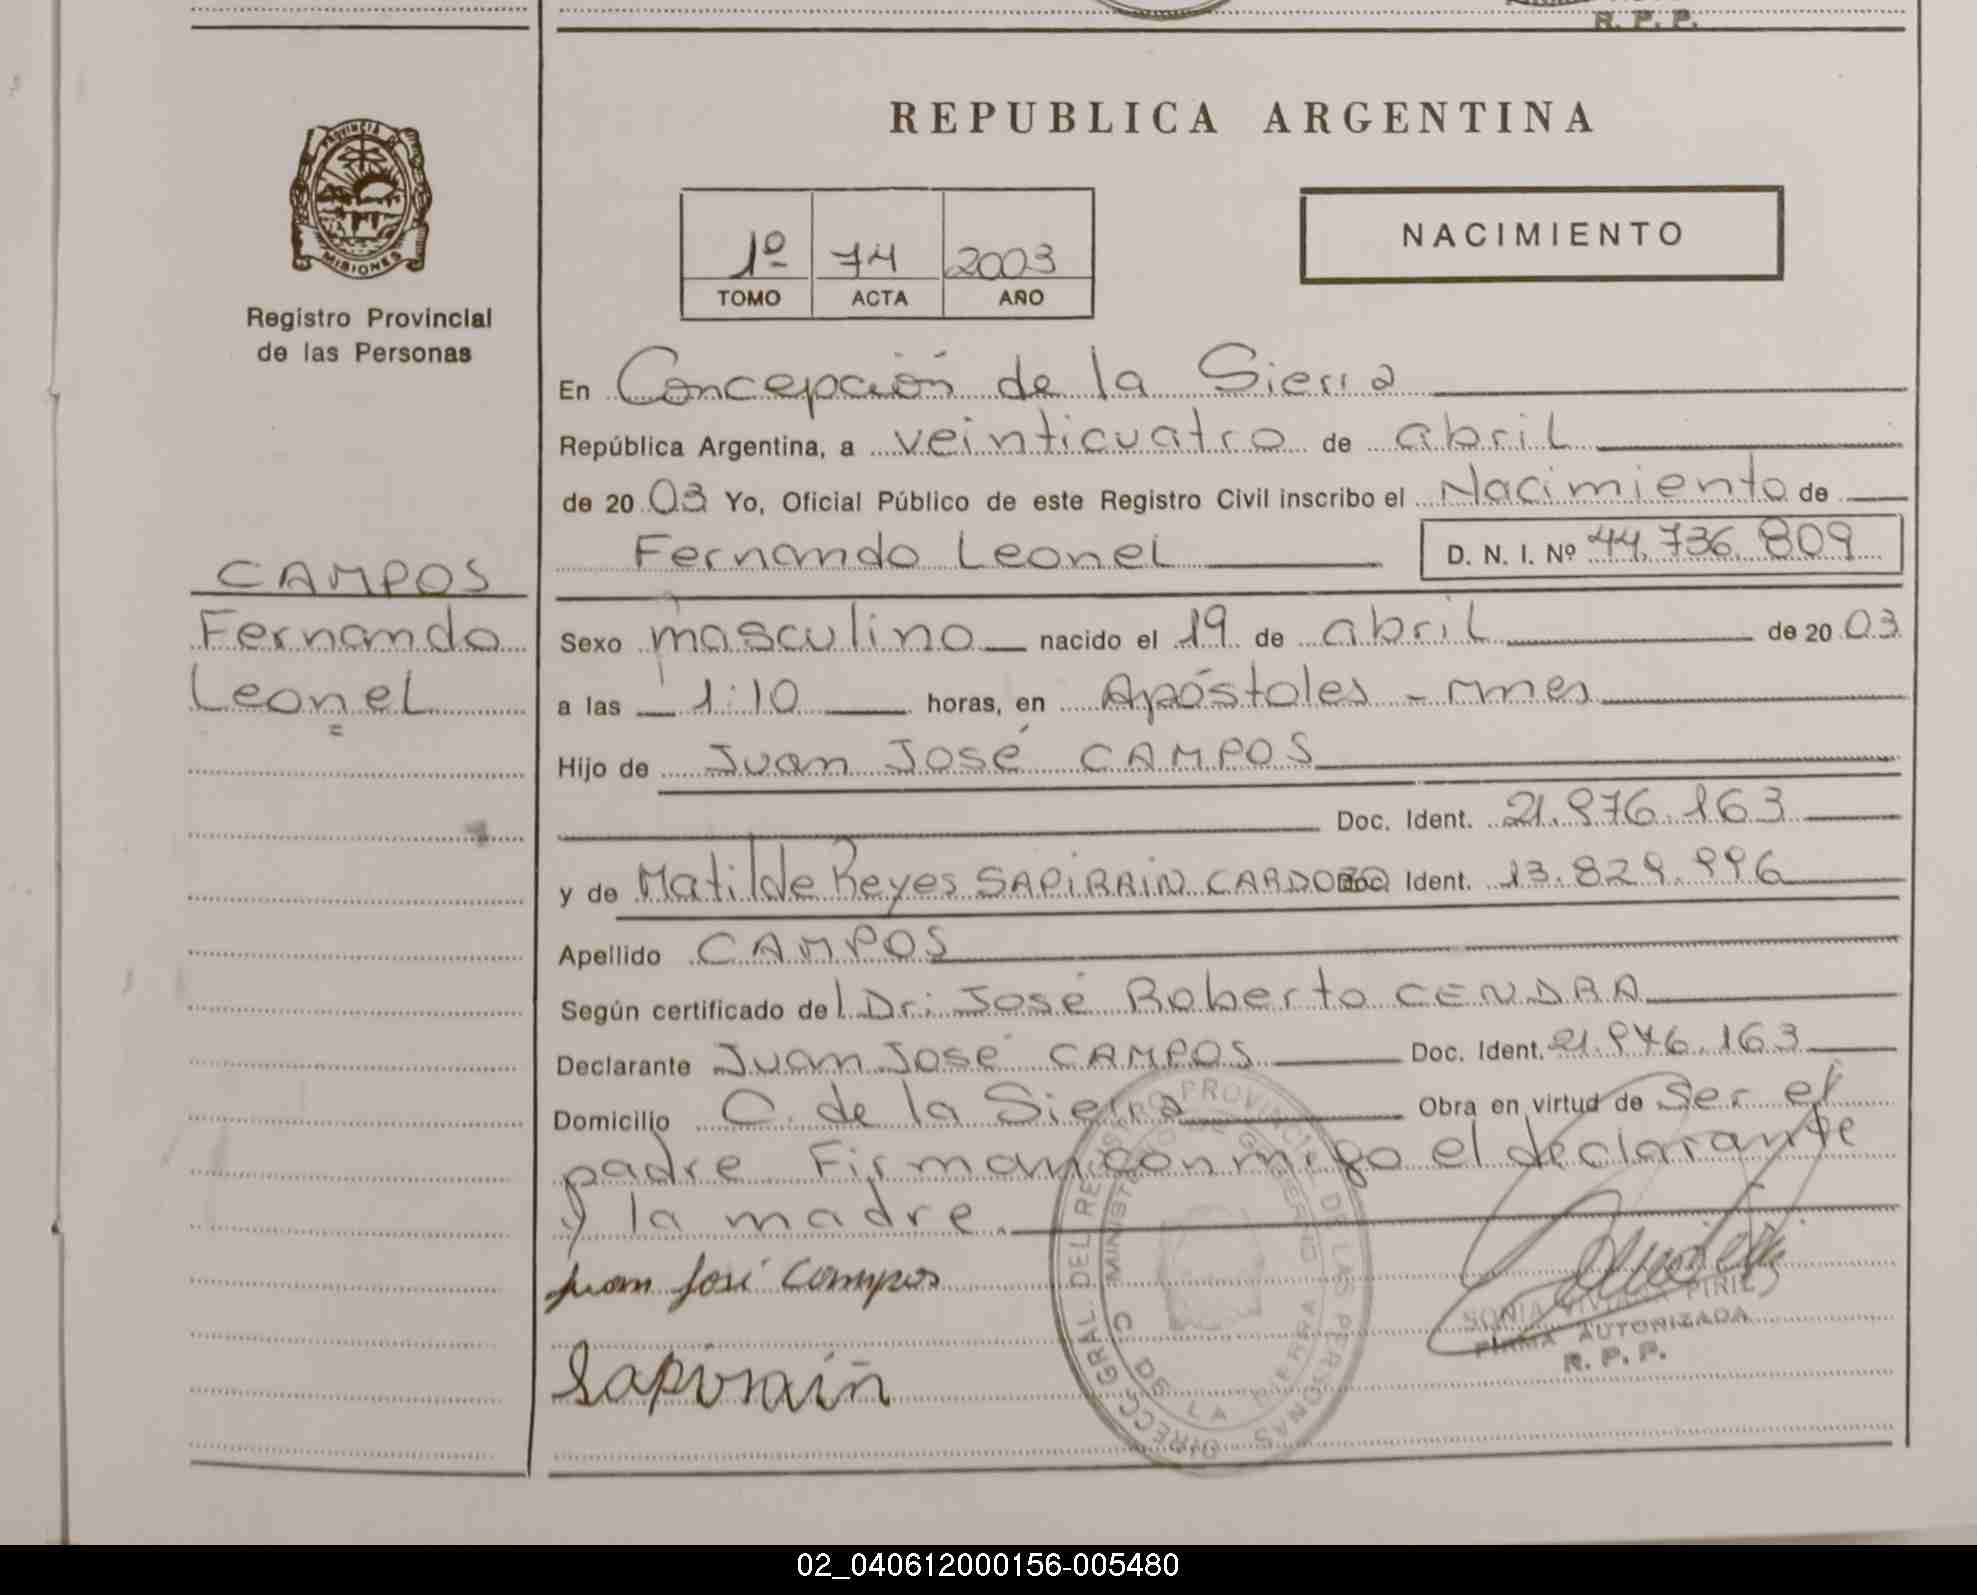 R. P. P.
REPUBLICA ARGENTINA
PROVINCIA DE
MISIONES
Registro Provincial
de las Personas
1º 74 2003
TOMO ACTA AÑO
NACIMIENTO
En Concepción de la Sierra
República Argentina, a veinticuatro de abril
de 20 03 Yo, Oficial Público de este Registro Civil inscribo el Nacimiento de
Fernando Leonel D. N. I. Nº 44.736.809
CAMPOS
Fernando
Leonel
Sexo masculino nacido el 19 de abril de 20 03
a las 1:10 horas, en Apóstoles - Mnes
Hijo de Juan José CAMPOS
Doc. Ident. 21.976.163
y de Matilde Reyes SAPIRAIN CARDOZO Doc. Ident. 13.829.996
Apellido CAMPOS
Según certificado del Dr: José Roberto CENDRA
Declarante Juan José CAMPOS Doc. Ident. 21.976.163
Domicilio C. de la Sierra Obra en virtud de ser el
padre Firman conmigo el declarante
y la madre.
Juan José Campos
Sapirain
DIRECC. GRAL. DEL REGISTRO PROVINCIAL DE LAS PERSONAS
MINISTERIO DE GOBIERNO
C. DE LA SIERRA
SONIA VIVIANA
FIRMA AUTORIZADA
R. P. P.
02_040612000156-005480